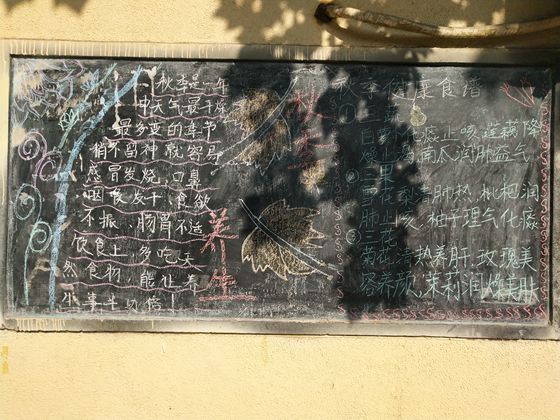 秋季是一年
中天气最干燥
最多变的季节
稍不留神就容易
感冒发烧,口鼻
咽喉发干,食欲
不振,肠胃不适
饮食上,多吃天
然食物,能让养
生事半功倍!
秋季
养生
秋季健康食谱
①三蔬
白萝卜 化痰止咳 莲藕降
燥 南瓜润肺益气
②三果
雪花梨清肺热,枇杷润
肺止咳,柚子理气化痰
③三花
菊花清热养肝,玫瑰美
容养颜,茉莉润燥美肤